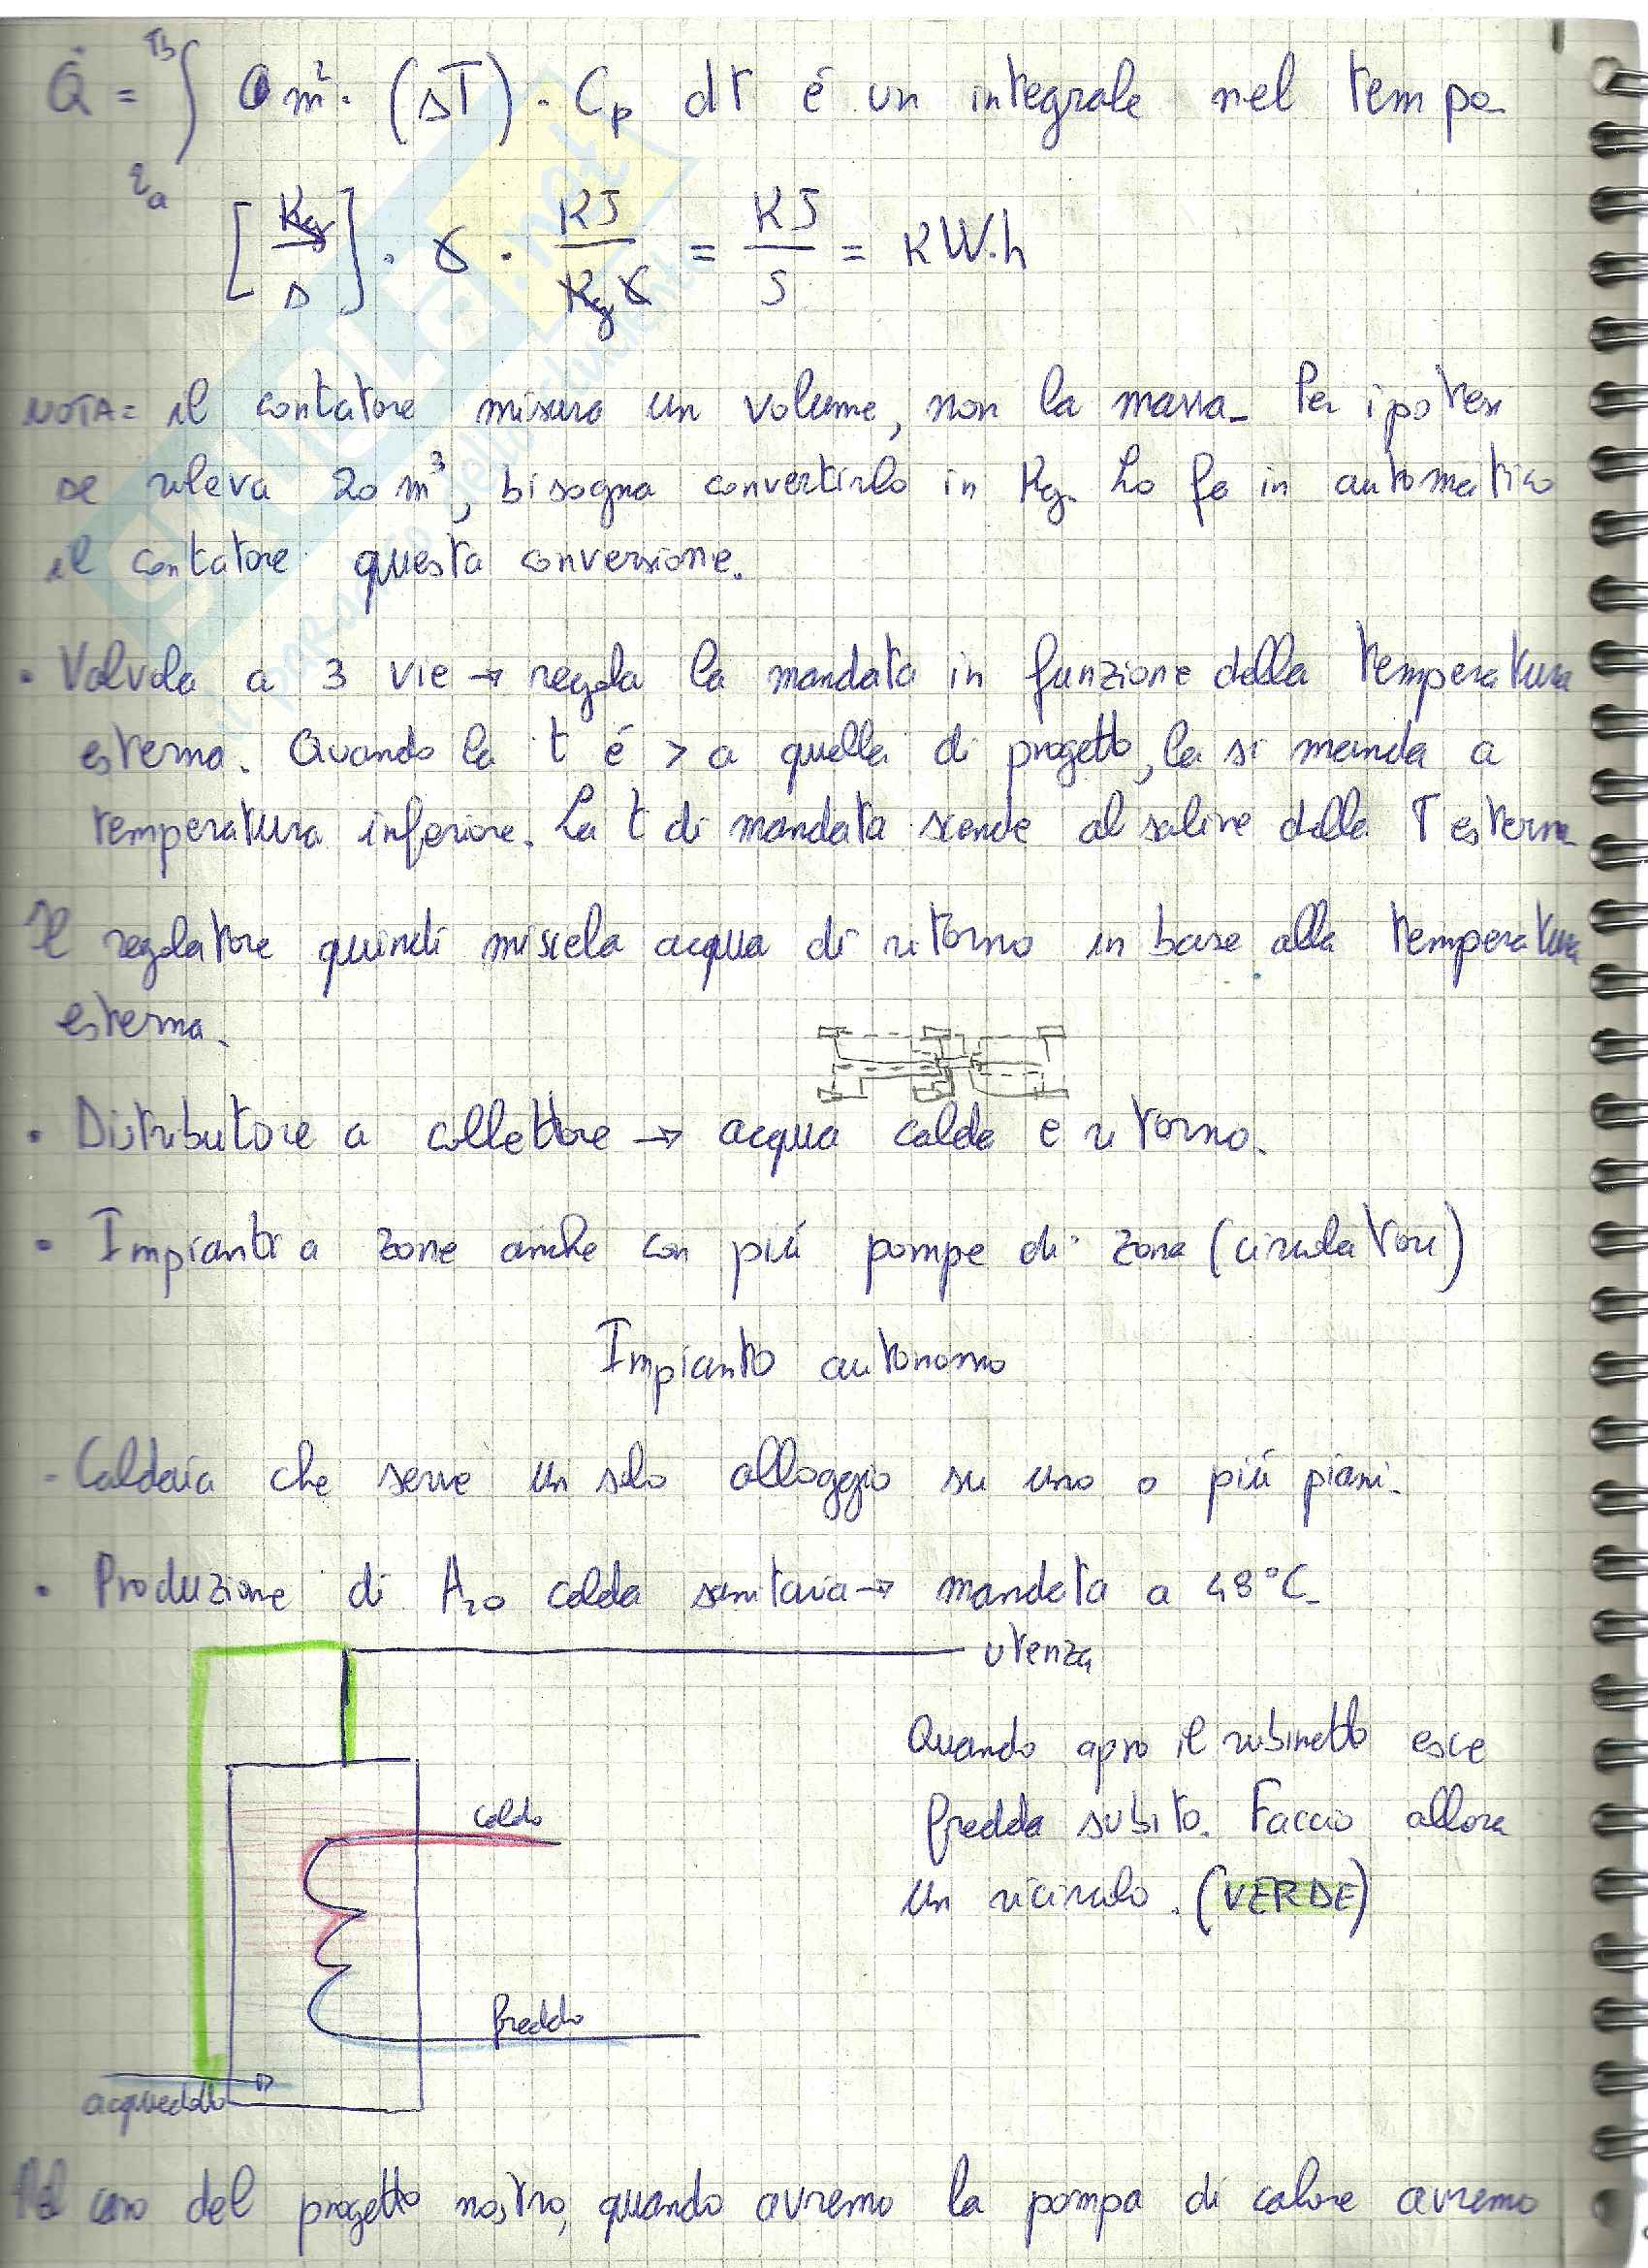 Q̇ = ∫ ṁ · (ΔT) · Cp dτ é un integrale nel tempo
τB
τa
[Kg/s] · K · KJ/KgK = KJ/S = KW·h
NOTA= il contatore misura un volume, non la massa. Per ipotesi
se rileva 20 m³, bisogna convertirlo in Kg. Lo fa in automatico
il contatore questa conversione.
• Valvola a 3 vie → regola la mandata in funzione della temperatura
esterna. Quando la t é > a quella di progetto, la si manda a
temperatura inferiore. La t di mandata scende al salire della T esterna
Il regolatore quindi miscela acqua di ritorno in base alla temperatura
esterna.
• Distributore a collettore → acqua calda e ritorno.
• Impianti a zone anche con più pompe di zona (circolatori)
Impianto autonomo
- Caldaia che serve un solo alloggio su uno o più piani.
• Produzione di H2O calda sanitaria → mandata a 48°C
utenza
Quando apro il rubinetto esce
fredda subito. Faccio allora
un ricircolo. (VERDE)
caldo
freddo
acquedotto
Nel caso del progetto nostro, quando avremo la pompa di calore avremo
SKUOLA.net